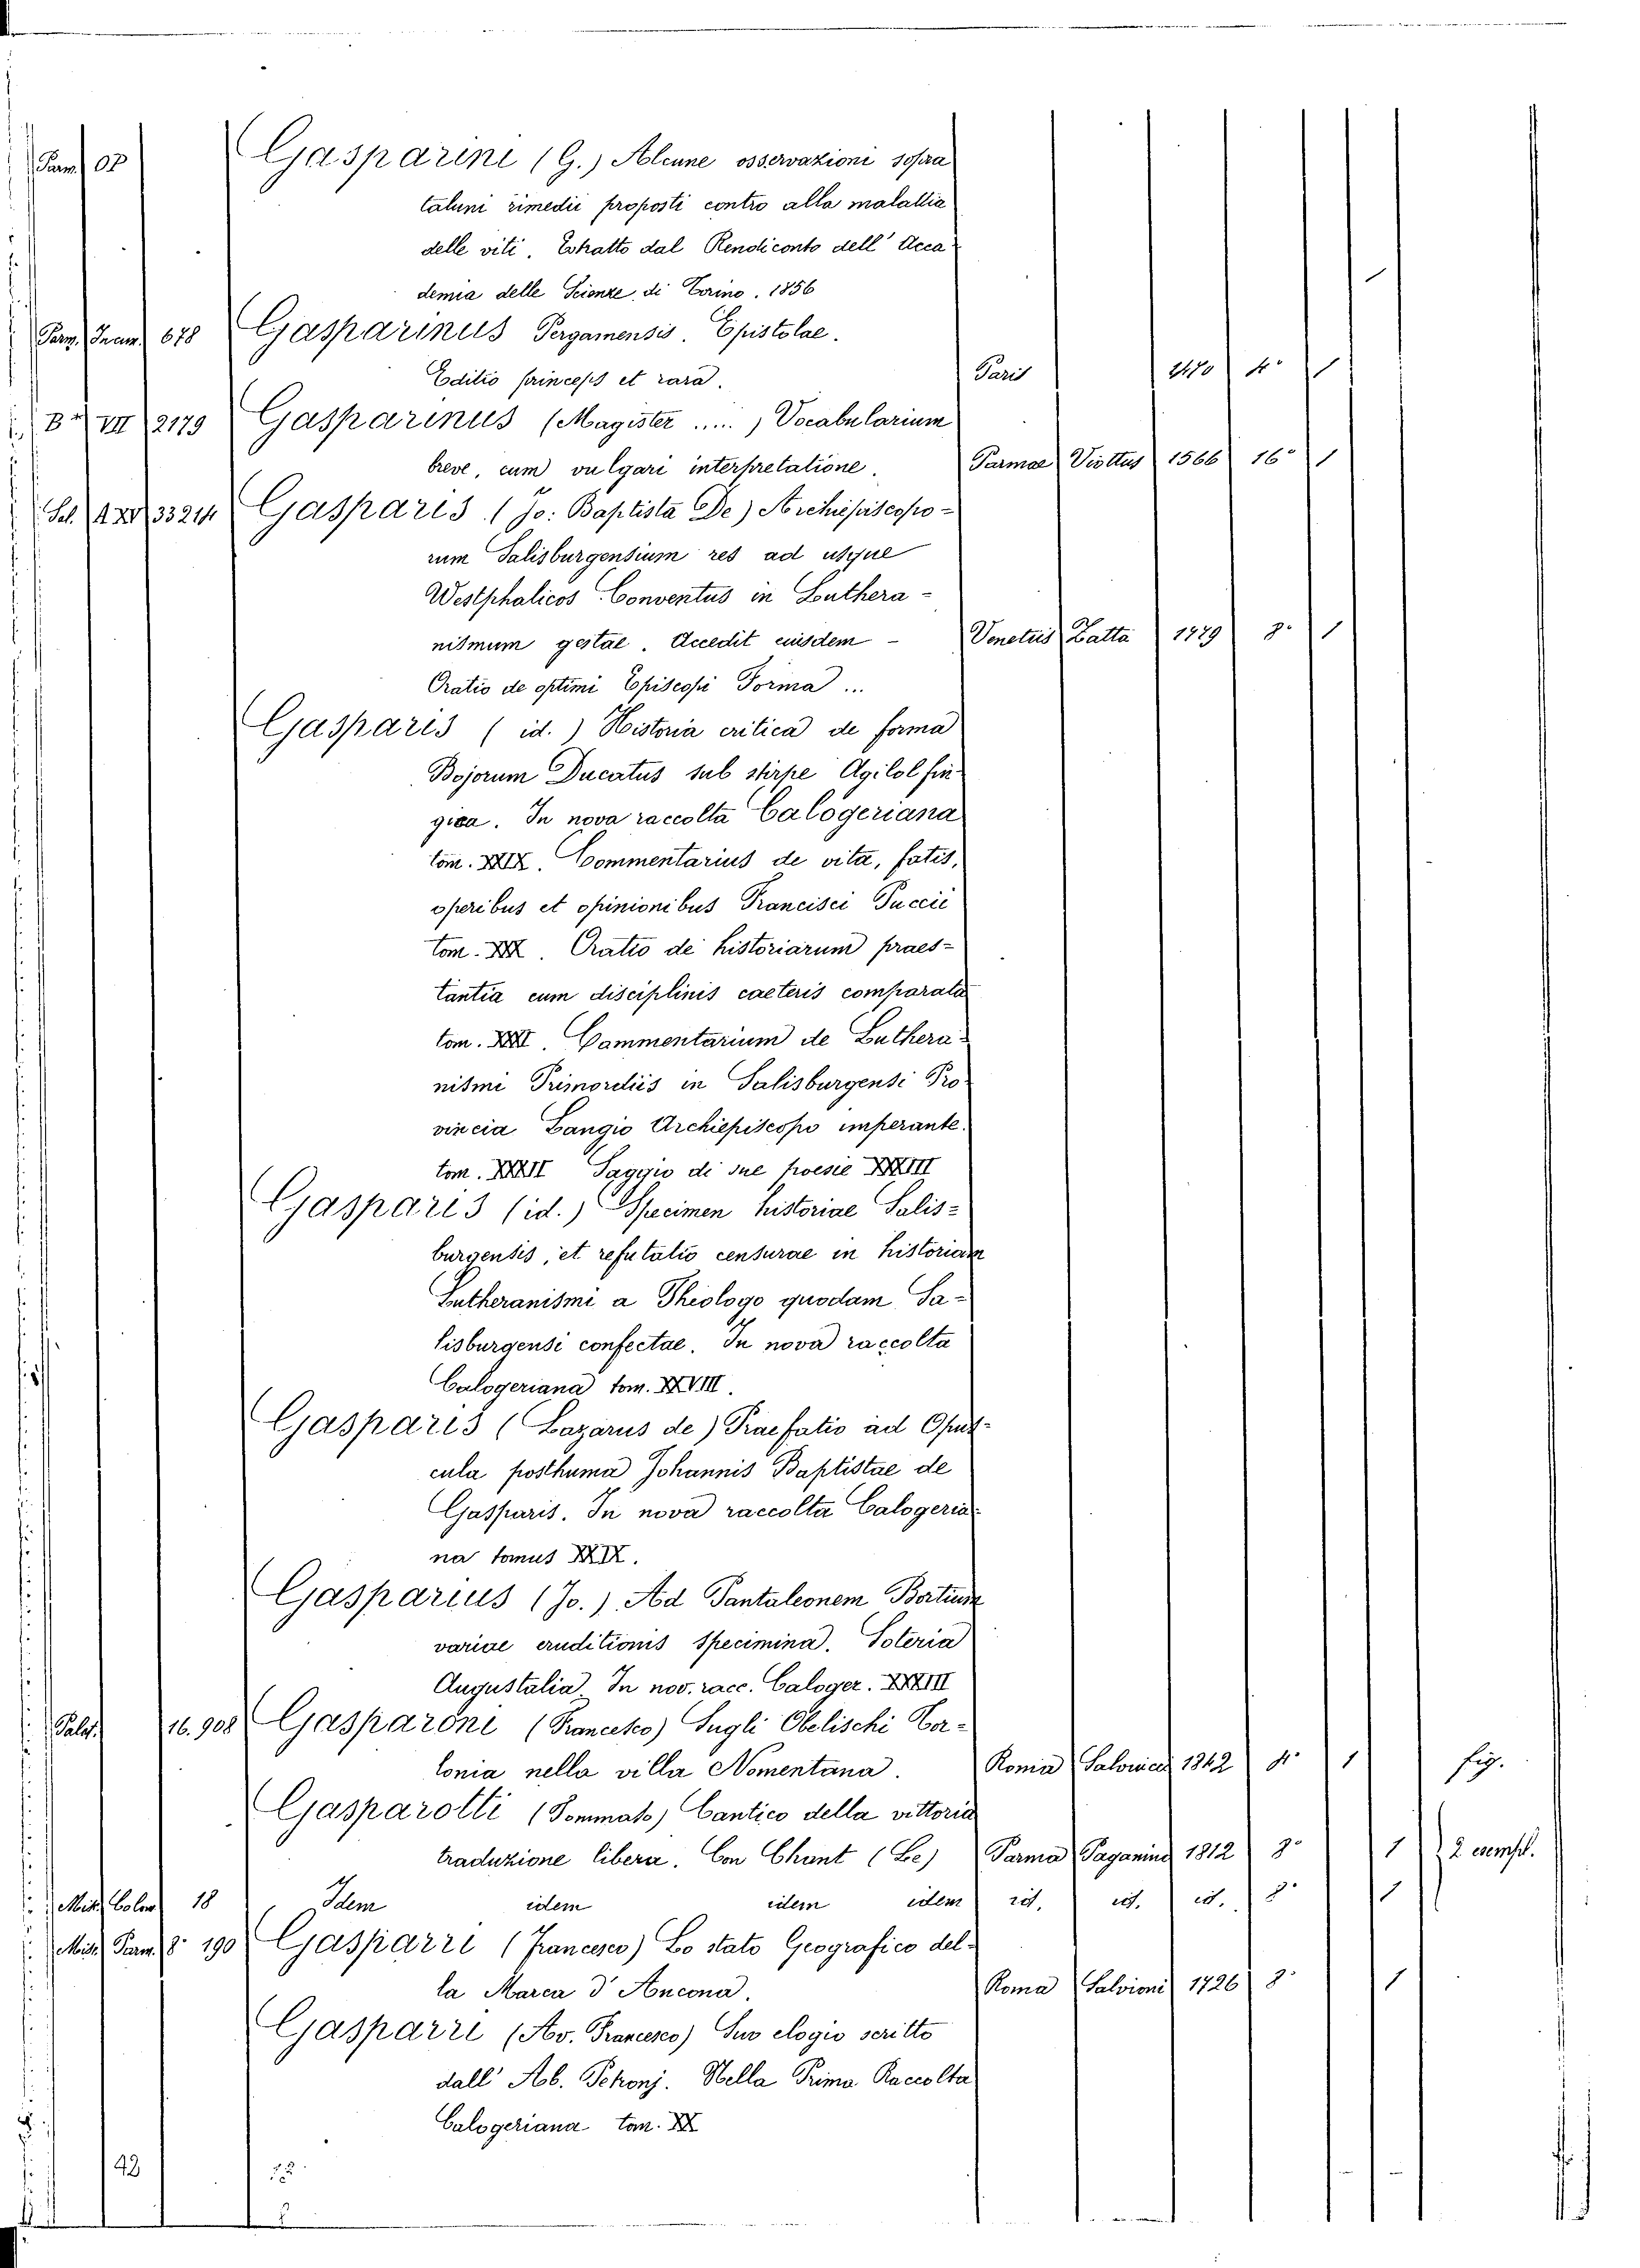 Parm. 02 Gasparini (G.) Alcune osservazioni sopra
taluni rimedii proposti contro alla malattia
delle viti. Estratto dal Rendiconto dell' Acca
demia delle Scienze di Torino. 1856
Parm. Incun. 678 Gasparinus Pergamensis. Epistolae.
Editio princeps et rara. Paris 1470 4° 1
VII 2179 Gasparinus (Magister .....) Vocabularium
breve, cum vulgari interpretatione. Parmae Viottus 1566 16° 1
Sal. AXV 33214 Gasparis (Jo: Baptista De) Archiepiscopo-
rum Salisburgensium res ad usque
Westphalicos Conventus in Luthera-
nismum gestae. Accedit eiusdem - Venetiis Zatta 1779 8° 1
Oratio de optimi Episcopi Forma ...
Gasparis (id.) Historia critica de forma
Bojorum Ducatus sub stirpe Agilolfin
gica. In nova raccolta Calogeriana
tom. XXIX. Commentarius de vita, fatis,
operibus et opinionibus Francisci Puccii
tom. XXX. Oratio de historiarum praes-
tantia cum disciplinis caeteris comparata
tom. XXXI. Commentarium de Luthera-
nismi Primordiis in Salisburgensi Pro
vincia Langio Archiepiscopo imperante.
tom. XXXII Saggio di sue poesie XXXIII
Gasparis (id.) Specimen historiae Salis-
burgensis, et refutatio censurae in historiam
Lutheranismi a Theologo quodam Sa-
lisburgensi confectae. In nova raccolta
Calogeriana tom. XXVIII.
Gasparis (Lazarus de) Praefatio ad Opus-
cula posthuma Johannis Baptistae de
Gasparis. In nova raccolta Calogeria
na tomus XXIX.
Gasparius (Jo.) Ad Pantaleonem Bortium
variae eruditionis specimina. Soteria
Augustalia. In nov. racc. Caloger. XXXIII
Palat. 16.908 Gasparoni (Francesco) Sugli Obelischi Tor-
lonia nella villa Nomentana. Roma Salviucci 1842 4° 1 fig.
Gasparotti (Tommaso) Cantico della vittoria
traduzione libera. Con Chant (Le) Parma Paganino 1812 8° 1 2 esempl.
Misc. Colom 18 Idem idem idem idem id. id. id. 8° 1
Misc. Parm. 8° 190 Gasparri (Francesco) Lo stato Geografico del-
la Marca d' Ancona. Roma Salvioni 1726 8° 1
Gasparri (Av. Francesco) Suo elogio scritto
dall' Ab. Pekonj. Nella Prima Raccolta
Calogeriana tom. XX
42